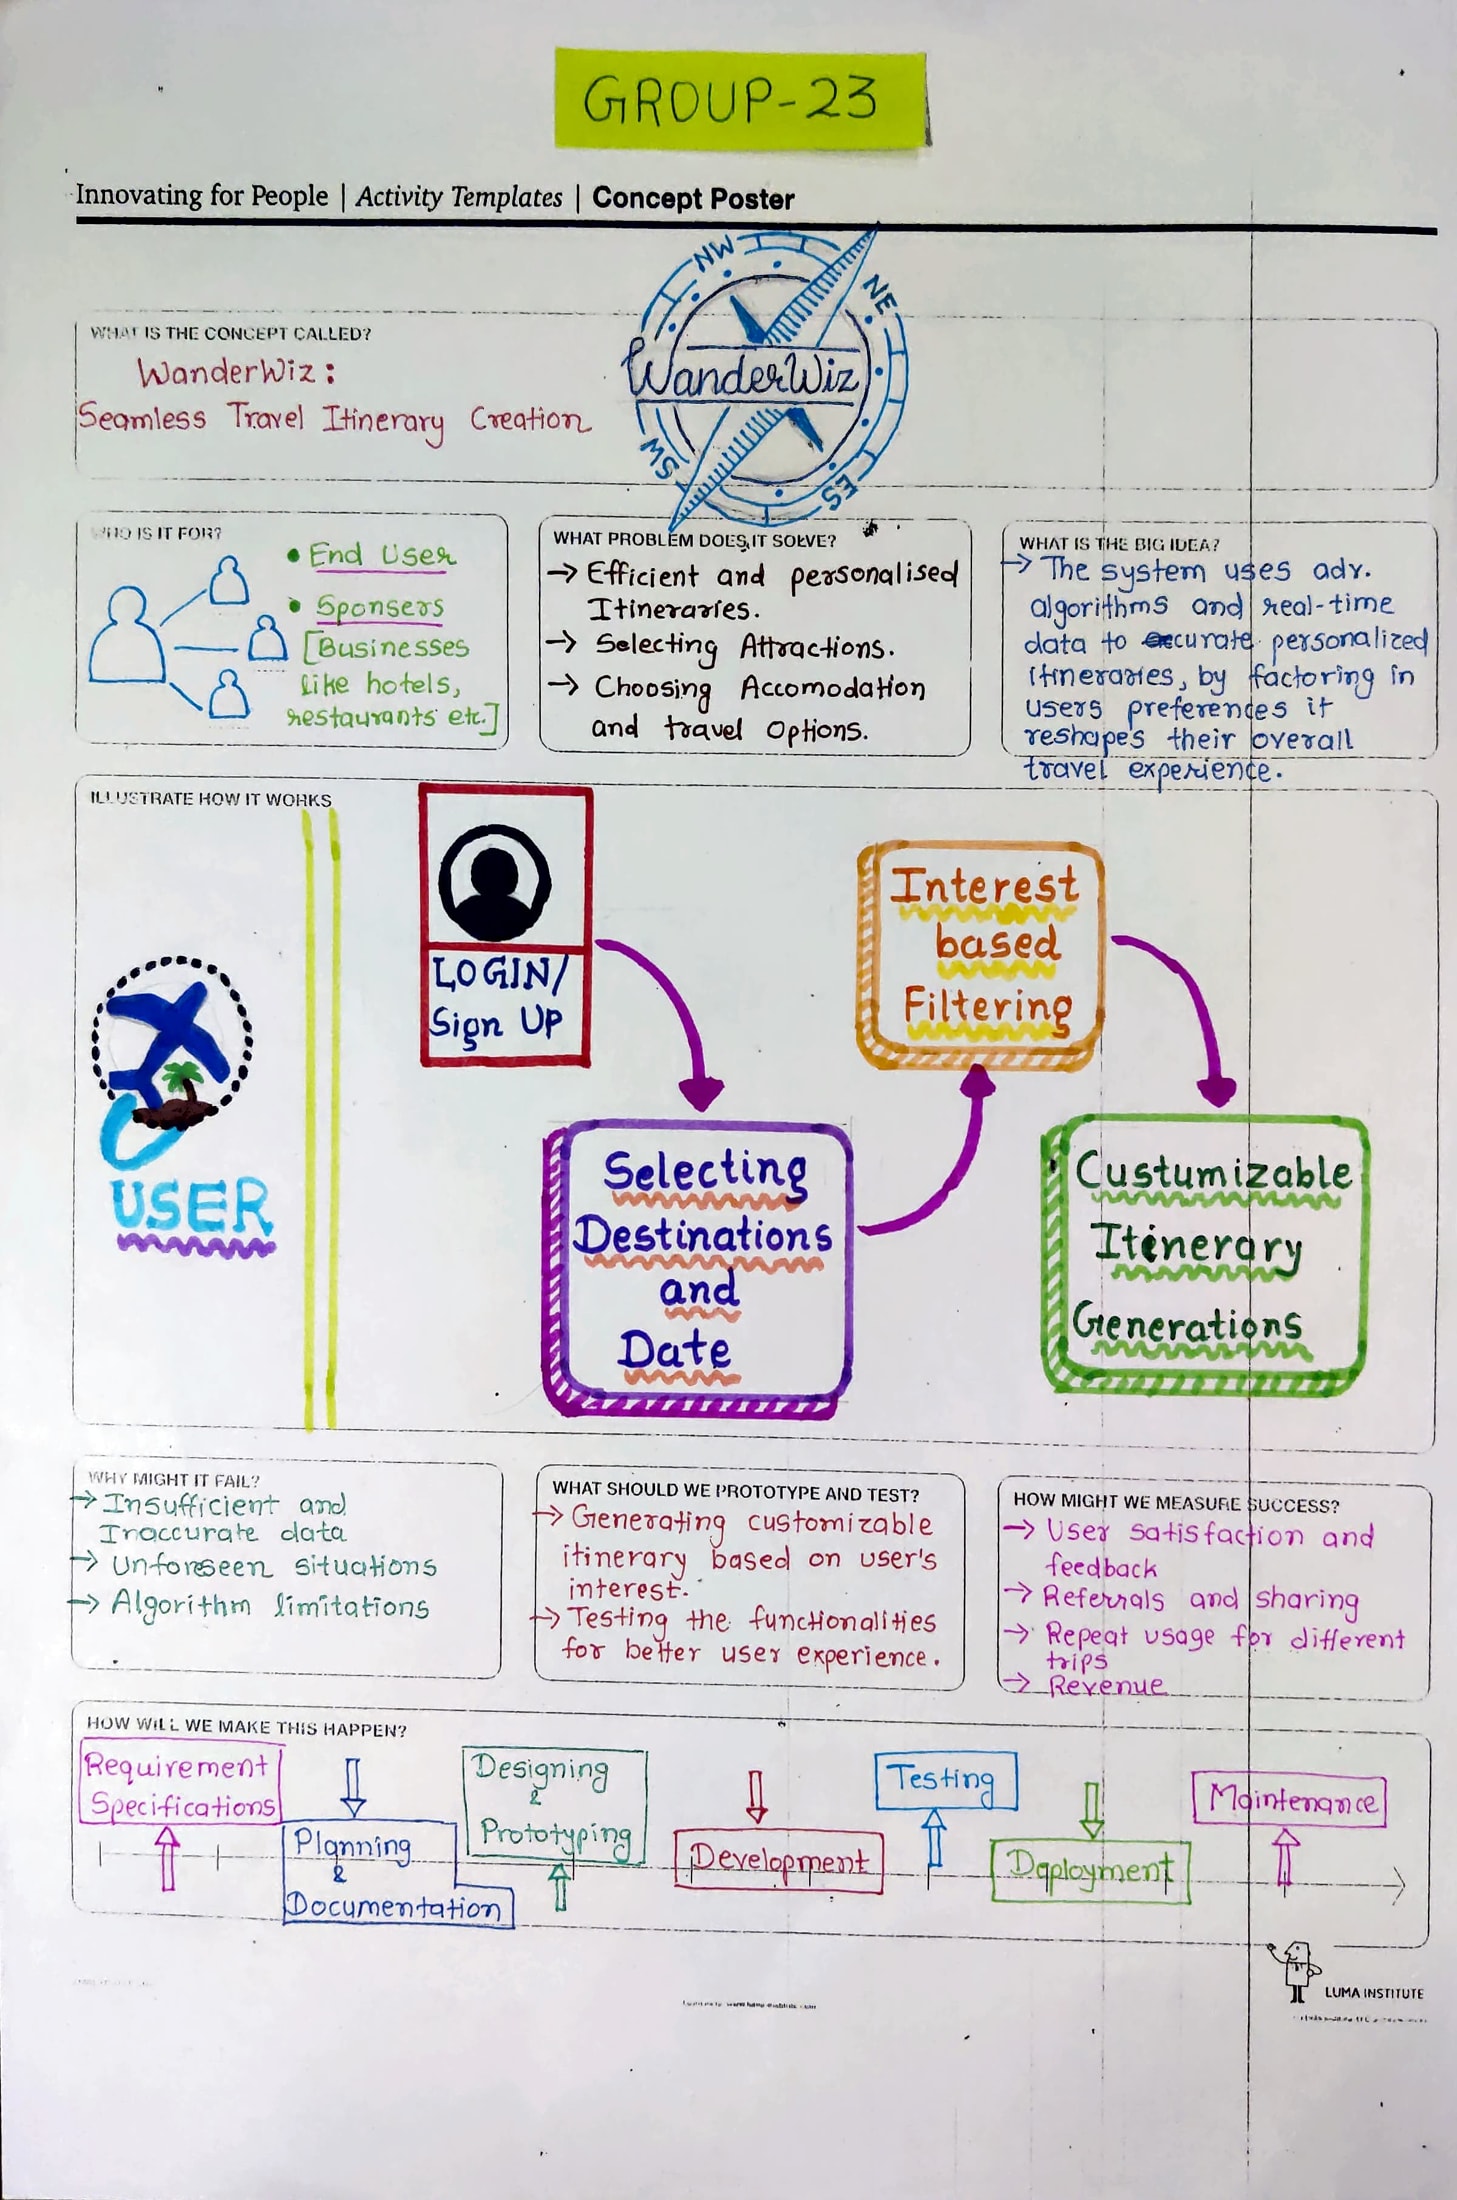 GROUP-23
Innovating for People | Activity Templates | Concept Poster
WHAT IS THE CONCEPT CALLED?
WanderWiz:
Seamless Travel Itinerary Creation
NW
NE
WanderWiz
SW
ES
WHO IS IT FOR?
• End User
• Sponsers
[Businesses
like hotels,
restaurants etc.]
WHAT PROBLEM DOES IT SOLVE?
→ Efficient and personalised
Itineraries.
→ Selecting Attractions.
→ Choosing Accomodation
and travel Options.
WHAT IS THE BIG IDEA?
→ The system uses adv.
algorithms and real-time
data to curate personalized
itineraries, by factoring in
users preferences it
reshapes their overall
travel experience.
ILLUSTRATE HOW IT WORKS
USER
LOGIN/
Sign UP
Selecting
Destinations
and
Date
Interest
based
Filtering
Custumizable
Itinerary
Generations
WHY MIGHT IT FAIL?
→ Insufficient and
Inaccurate data
→ Unforeseen situations
→ Algorithm limitations
WHAT SHOULD WE PROTOTYPE AND TEST?
→ Generating customizable
itinerary based on user's
interest.
→ Testing the functionalities
for better user experience.
HOW MIGHT WE MEASURE SUCCESS?
→ User satisfaction and
feedback
→ Referrals and sharing
→ Repeat usage for different
trips
→ Revenue
HOW WILL WE MAKE THIS HAPPEN?
Requirement
Specifications
Planning
&
Documentation
Designing
&
Prototyping
Development
Testing
Deployment
Maintenance
LUMA INSTITUTE